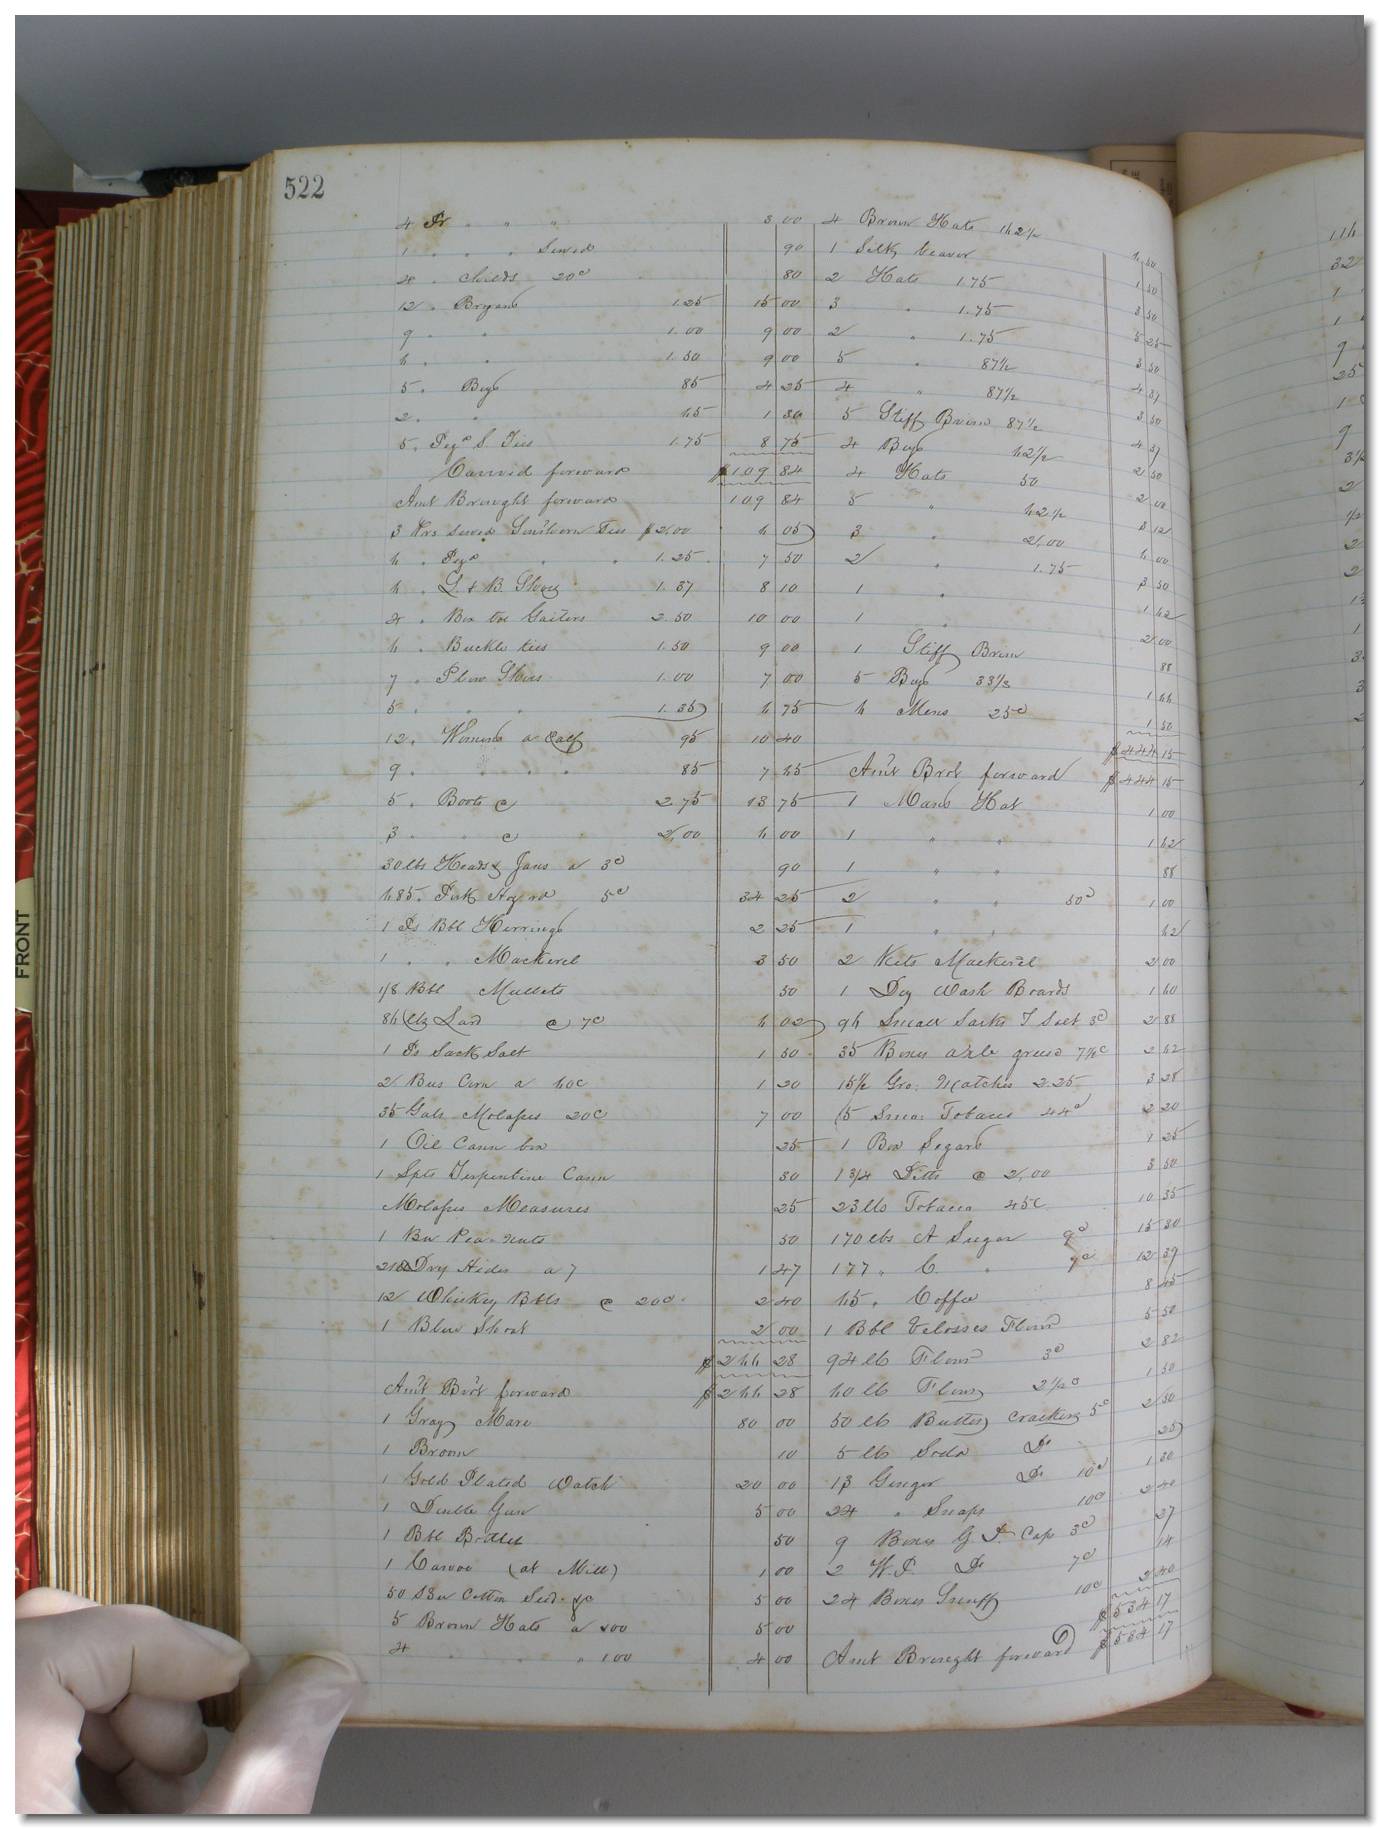 522
4 Pr " " " 3 00
1 " " " Sewed 90
4 " Childs 20c 80
12 " Brogans 1.25 15 00
9 " " 1.00 9 00
6 " " 1.50 9 00
5 " Boys 85 4 25
2 " " 65 1 30
5 " Peg'd S. Ties 1.75 8 75
Carried forward $109 84
Amt Brought forward 109 84
3 Prs sewed Southern Ties $2.00 6 05
6 " Peg'd " " 1.25 7 50
6 " L. & B. Shoes 1.37 8 10
4 " Box toe Gaiters 2.50 10 00
6 " Buckle ties 1.50 9 00
7 " Plow Shoes 1.00 7 00
5 " " " 1.35 6 75
12 " Womens a Calf 95 10 40
9 " " " " 85 7 65
5 " Boots @ 2.75 13 75
3 " " @ 2.00 6 00
30 lbs Heads & Jaws a 3c 90
685 " Pork Hog rd 5c 34 25
1 Bbl Herrings 2 25
1 " " Mackerel 3 50
1/8 Bbl Mullets 50
86 lbs Lard @ 7c 6 02
1 Sack Salt 1 50
2 Bus Corn a 60c 1 20
35 Gals Molasses 20c 7 00
1 Oil Cann box 25
1 Spts Terpentine Cann 50
Molasses Measures 25
1 Bu Pea-nuts 50
Dry Hides a 7 1 47
12 Whiskey Bbls @ 20c 2 40
1 Blue Shoat 2 00
$266 28
Am't Bro't forward $266 28
1 Gray Mare 80 00
1 Broom 10
1 Gold Plated Watch 20 00
1 Double Gun 5 00
1 Bbl Bottles 50
1 Canoe (at Mill) 1 00
50 Bu Cotton Seed 5 00
5 Brown Hats a 1.00 5 00
4 " " " 1.00 4 00
4 Brown Hats 62½ 2 50
1 Silk beaver 1 50
2 Hats 1.75 3 50
3 " 1.75 5 25
2 " 1.75 3 50
5 " 87½ 4 37
4 " 87½ 3 50
5 Stiff Brim 87½ 4 37
4 Boys 62½ 2 50
4 Hats 50 2 00
5 " 62½ 3 12
3 " 2.00 6 00
2 " 1.75 3 50
1 " 1 62
1 " 2 00
1 Stiff Brim 88
5 Boys 33⅓ 1 66
6 Mens 25c 1 50
$444 15
Am't Bro't forward $444 15
1 Mans Hat 1 00
1 " " 1 62
1 " " 88
2 " " 50c 1 00
1 " " 62
2 Kits Mackerel 2 00
1 Doz Wash Boards 1 60
96 Small Sacks T Salt 3c 2 88
35 Boxes axle grease 7½c 2 62
Gro. Matches 2.25 3 28
5 Tobacco 44c 2 20
1 Box Segars 1 25
1 3/4 Ditto @ 2.00 3 50
23 lbs Tobacco 45c 10 35
170 lbs A Sugar 9c 15 30
177 " C. " 7c 12 39
65 " Coffee 8 45
1 Bbl Flour 5 50
94 lb Flour 3c 2 82
60 lb Flour 2½c 1 50
50 lb Butter Crackers 5c 2 50
5 lb Soda Do 25
13 Ginger Do 10c 1 30
24 " Snaps 10c 2 40
9 Boxes G. D. Caps 3c 27
2 W.P. Do 7c 14
24 Boxes Snuff 10c 2 40
$534 17
Amt Brought forward $534 17
FRONT